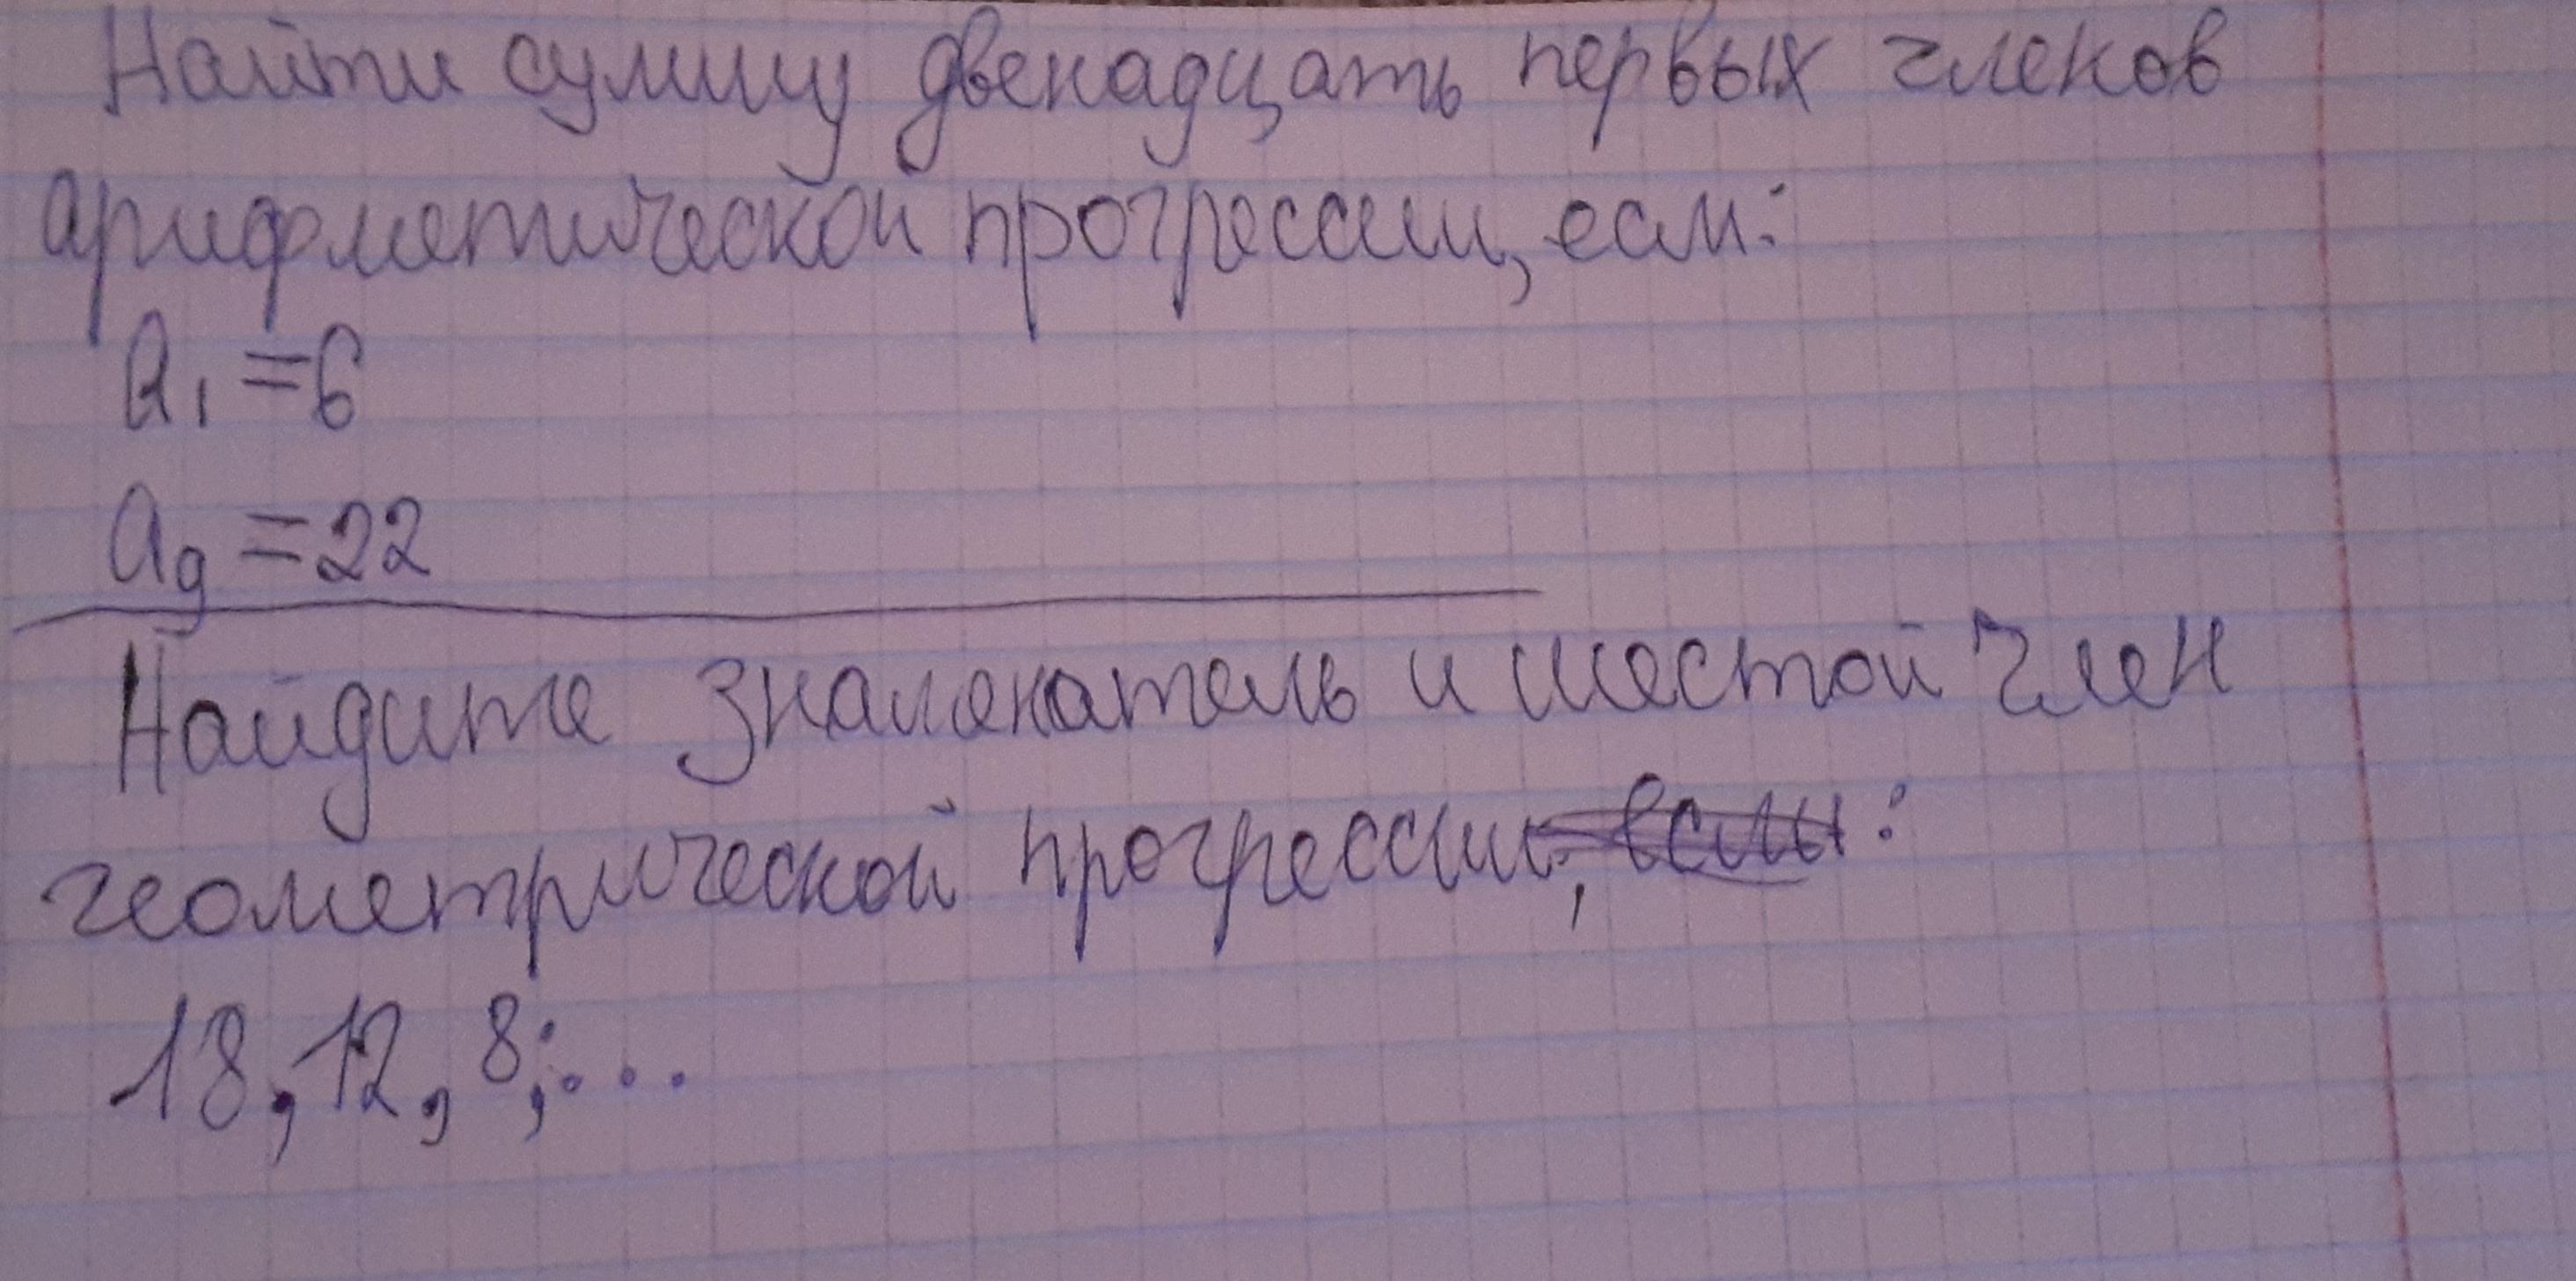 Найти сумму двенадцать первых членов
арифметической прогрессии, если:
a₁ = 6
a₉ = 22
Найдите знаменатель и шестой член
геометрической прогрессии, если:
18, 12, 8; ...